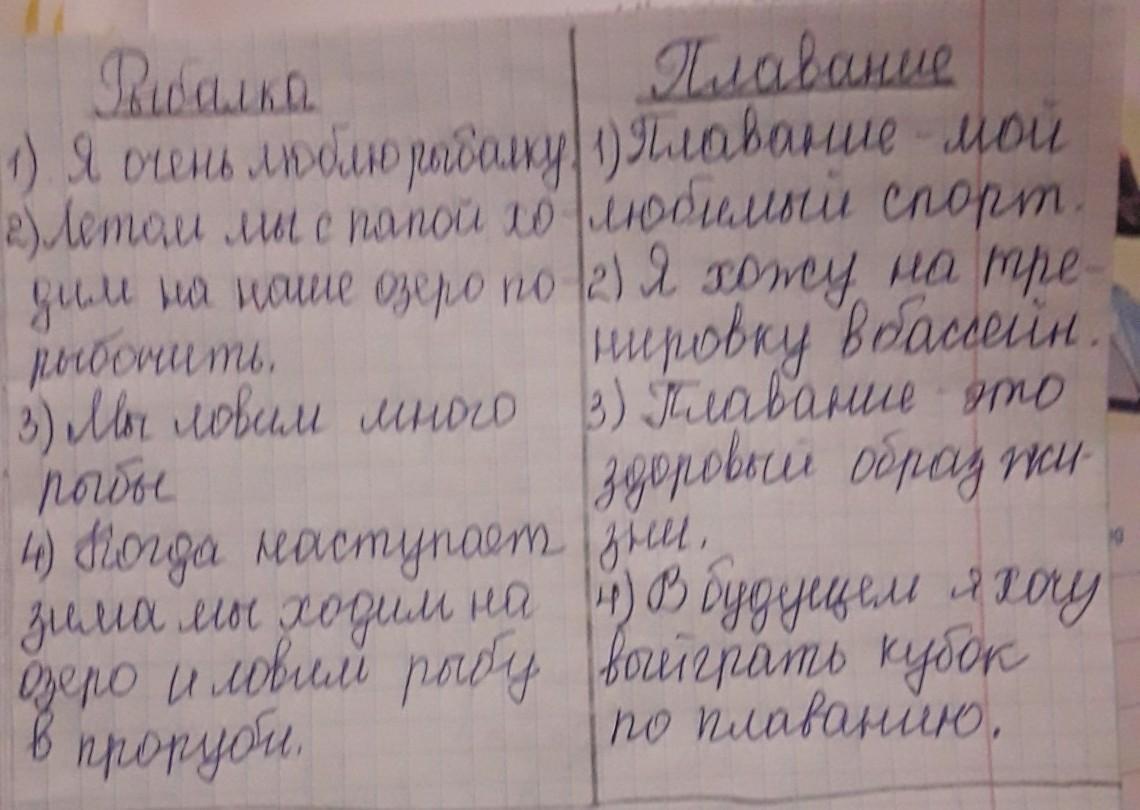 Рыбалка
1) Я очень люблю рыбалку.
2) Летом мы с папой хо-
дим на наше озеро по-
рыбачить.
3) Мы ловим много
рыбы
4) Когда наступает
зима мы ходим на
озеро и ловим рыбу
в проруби.
Плавание
1) Плавание - мой
любимый спорт.
2) Я хожу на тре-
нировку в бассейн.
3) Плавание - это
здоровый образ жи-
зни.
4) В будущем я хочу
выиграть кубок
по плаванию.